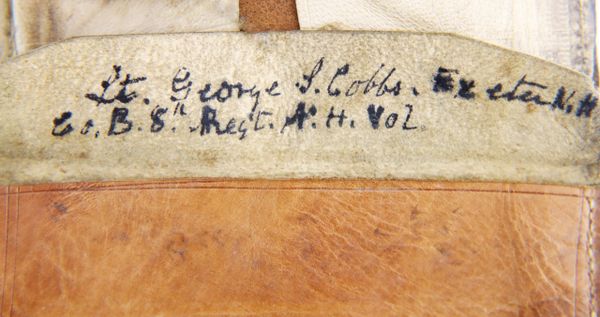 Lt. George S. Cobbs. Exeter N.H
Co. B. 8th Regt. N. H. Vol.